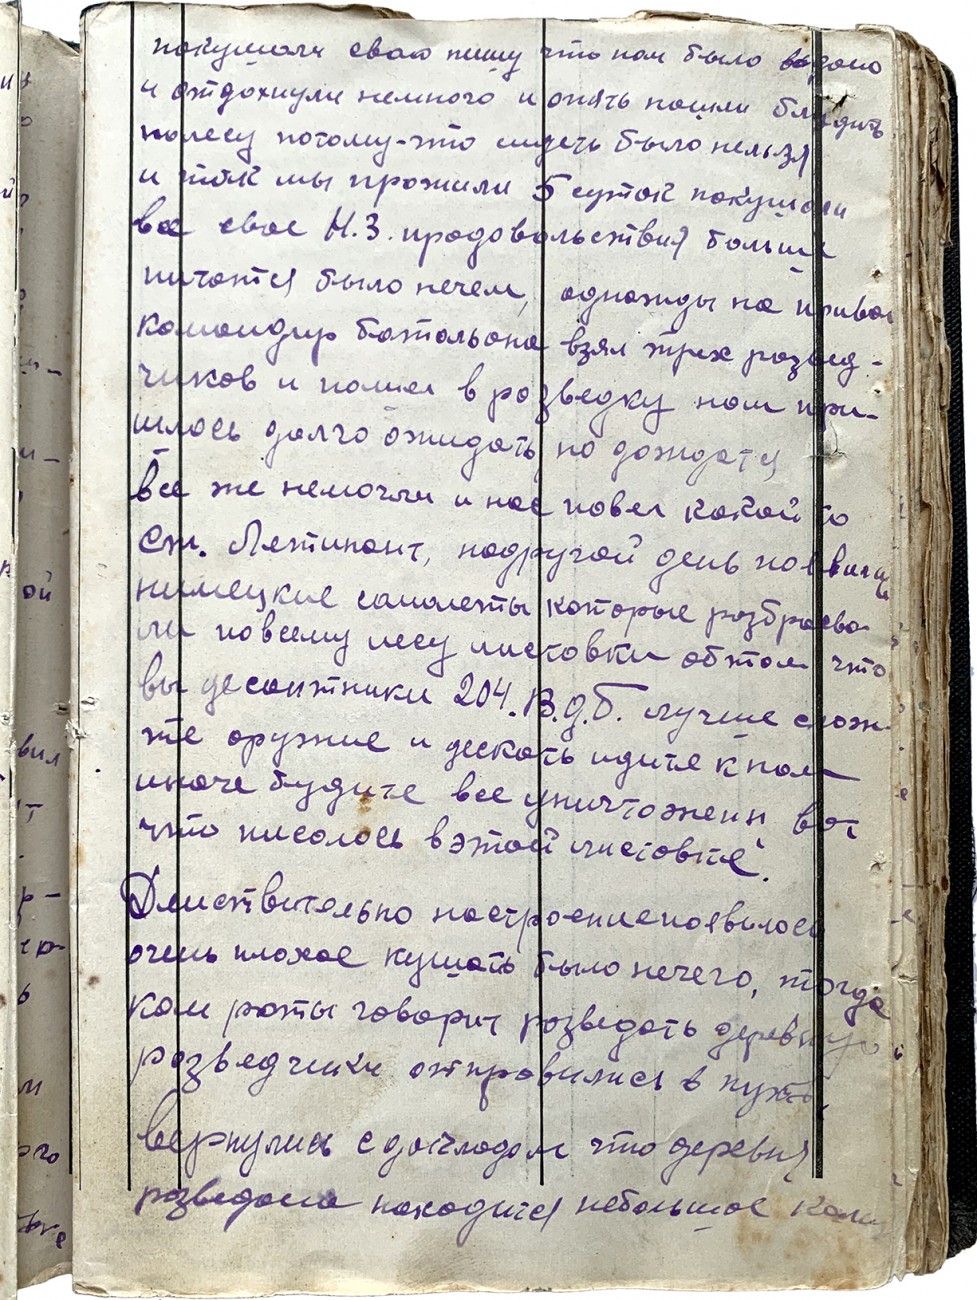 покушали свою пищу что нам было выдано
и отдохнули немного и опять пошли блудить
полесу потому-что сидеть было нельзя
и так мы прожили 5 суток покушали
все свое Н.З. продовольствия больше
питатся было нечем, однажды на привал
командир батальона взял трех развед-
чиков и пошел в разведку нам при-
шлось долго ожидать но дождатся
все же немогли и нас повел какой то
ст. Летинант, надругой день появились
нимецкие самолеты которые розбрасыва-
ли повсему лесу листовки обтом что
вы десантники 204. В.д.б. лучше слож-
те оружие и дескать идите к нам
иначе будите все уничтожены вот
что писалось в этой листовке.
Действительно настроение появилось
очень плохое кушать было нечего, тогда
ком роты говорит розведать деревню
розведчики отправились в путь,
вернулись с докладом что деревня
розведана находится небольшое коли